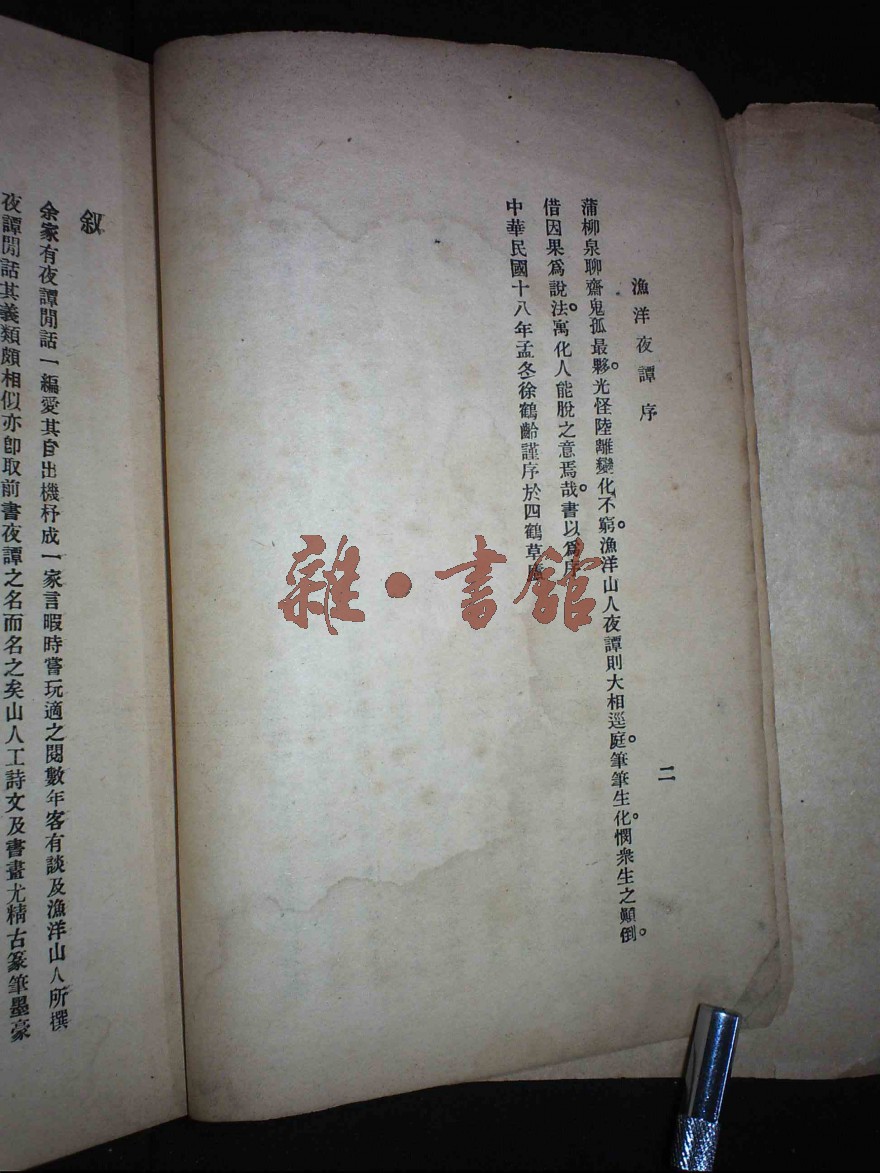 漁洋夜譚序
二
蒲柳泉聊齋鬼孤最夥。光怪陸離變化不窮。漁洋山人夜譚則大相逕庭。筆筆生化。憫衆生之顚倒。
借因果爲說法。寓化人能脫之意焉哉。書以爲序
中華民國十八年孟冬徐鶴齡謹序於四鶴草
雜·書館
敘
余家有夜譚閒話一編愛其自出機杼成一家言暇時嘗玩適之閱數年客有談及漁洋山人所撰
夜譚閒話其義類頗相似亦卽取前書夜譚之名而名之矣山人工詩文及書畫尤精古篆筆墨豪